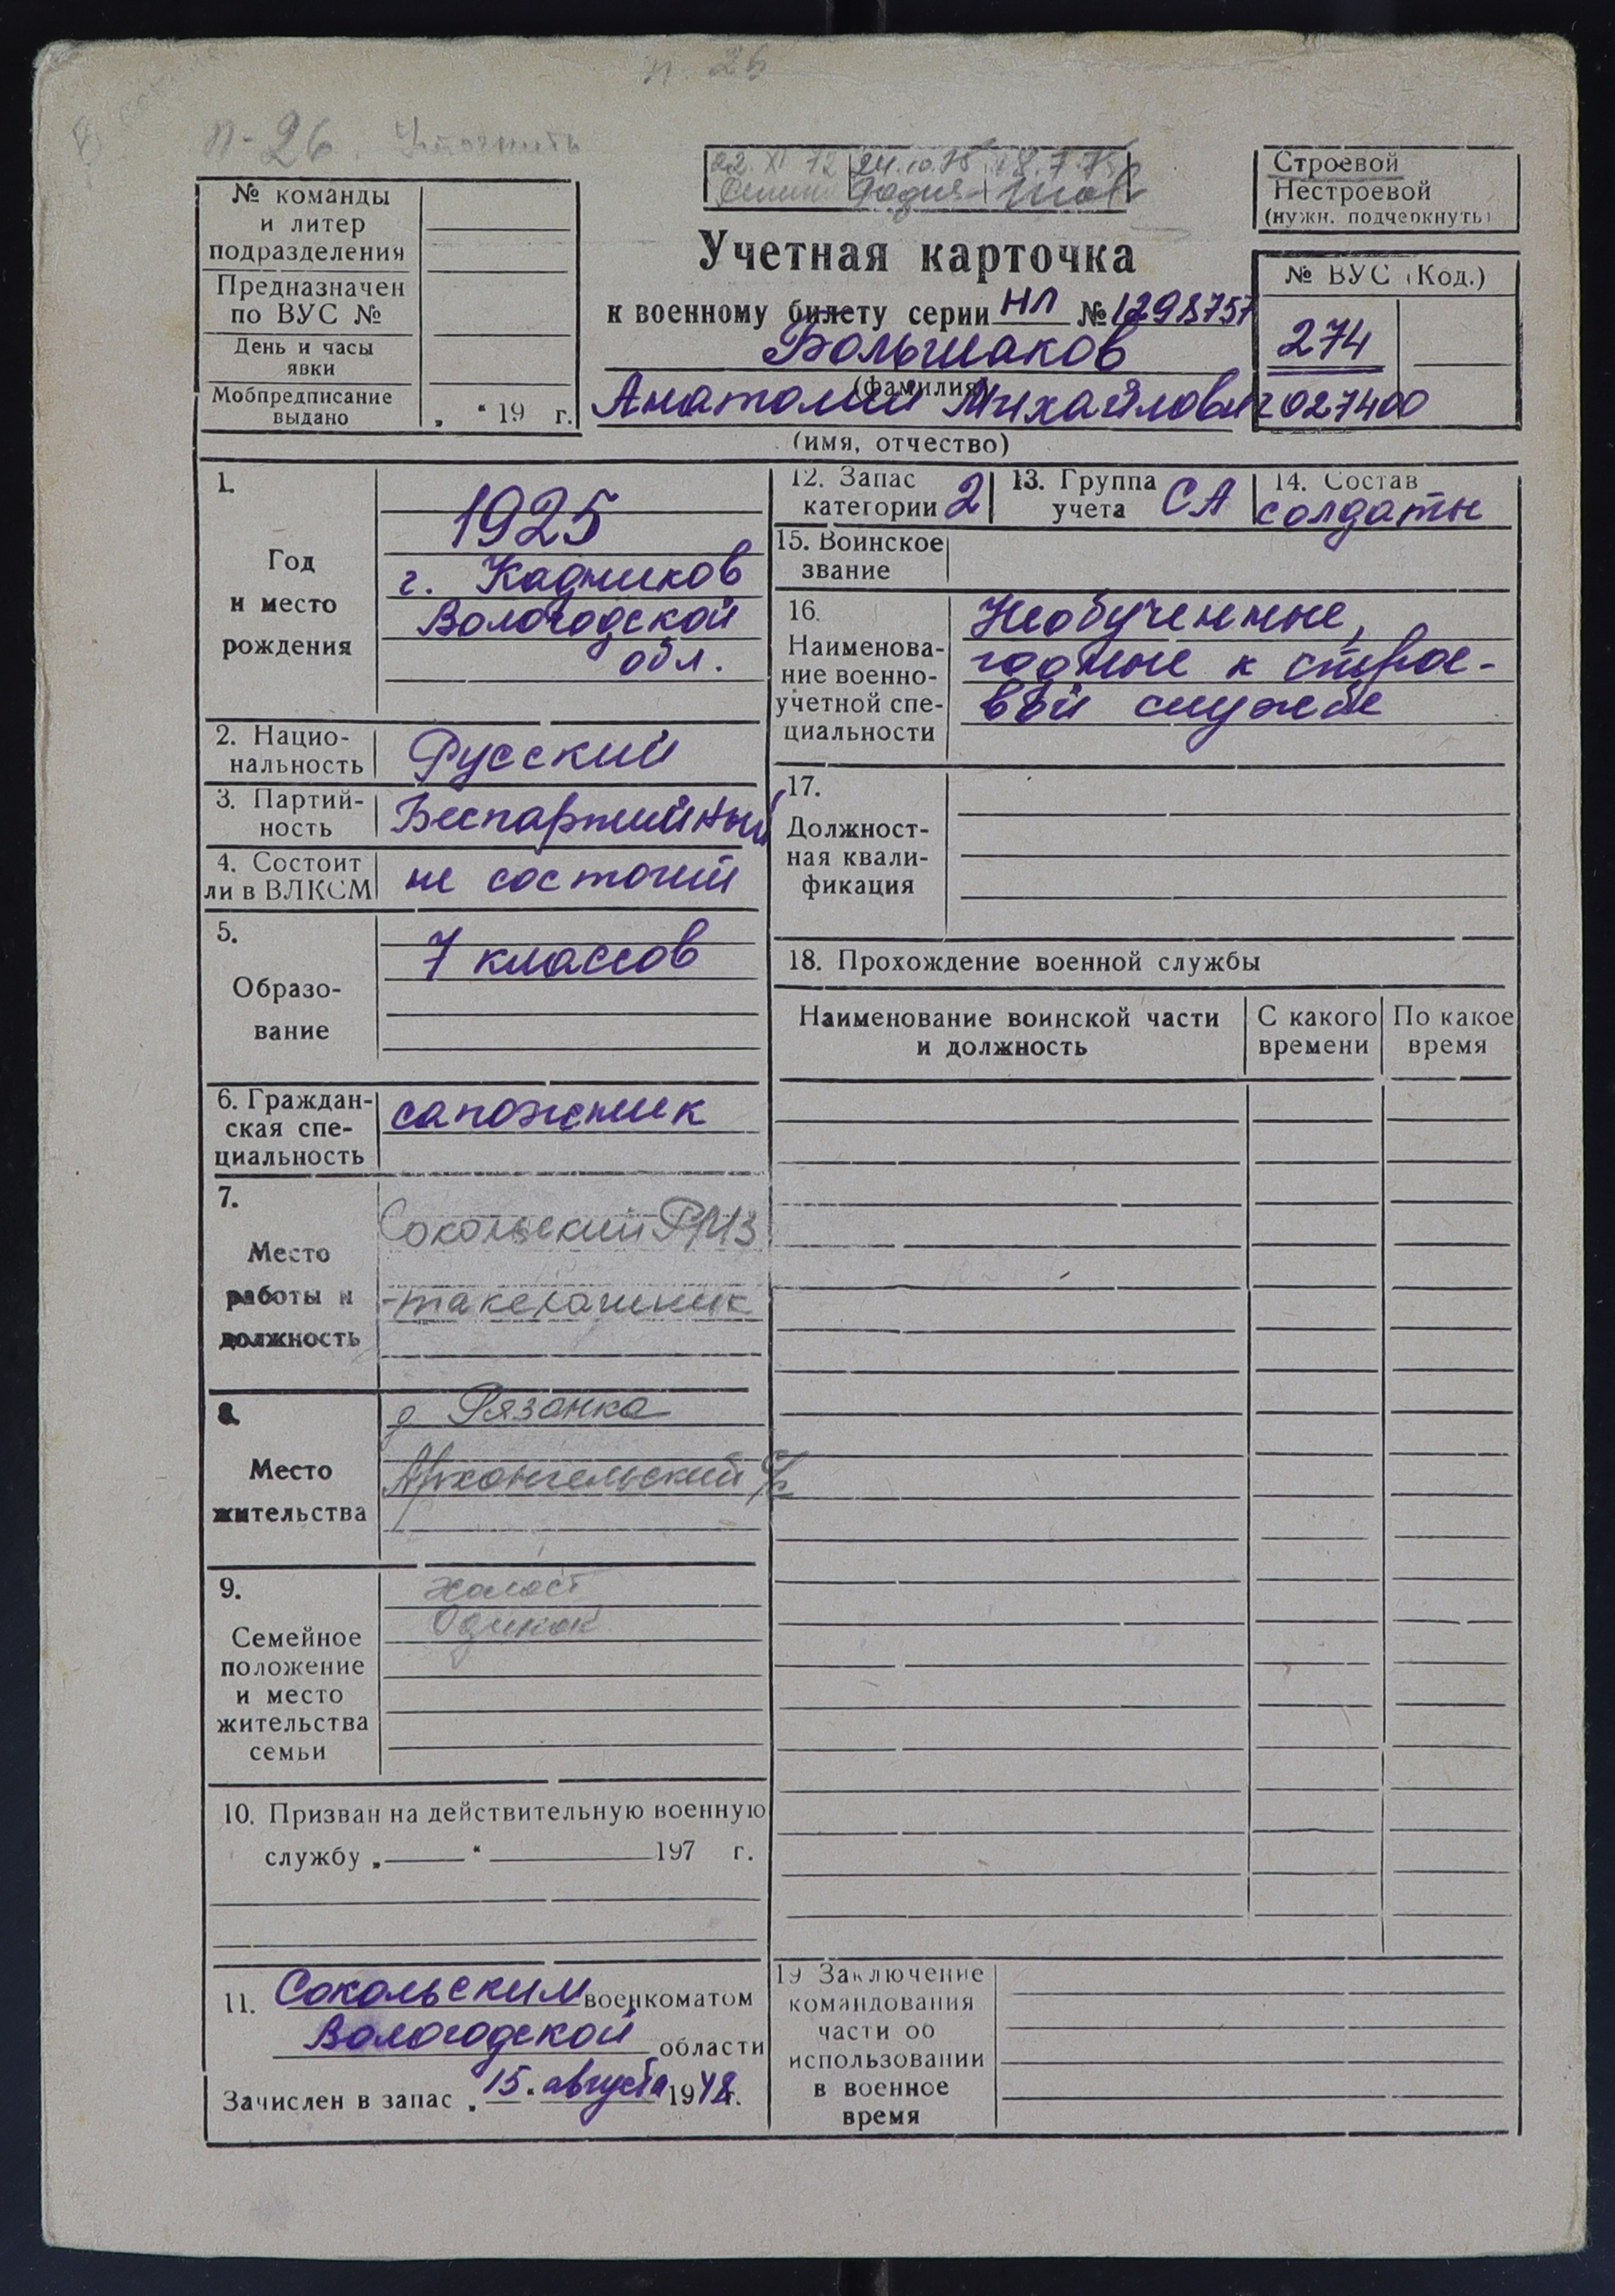 п. 26
п-26. Уточнить
22.XI 72 24.10.75 18.7.75
Строевой
Нестроевой
(нужн. подчеркнуть)
№ команды
и литер
подразделения
Предназначен
по ВУС №
День и часы
явки
Мобпредписание
выдано
„ “ 19 г.
Учетная карточка
к военному билету серии НЛ № 1298757
Большаков
(фамилия)
Анатолий Михайлович
(имя, отчество)
№ ВУС (Код.)
274
027400
1.
Год
и место
рождения
1925
г. Кадников
Вологодской
обл.
2. Нацио-
нальность
Русский
3. Партий-
ность
Беспартийный
4. Состоит
ли в ВЛКСМ
не состоит
5.
Образо-
вание
7 классов
6. Граждан-
ская спе-
циальность
сапожник
7.
Место
работы и
должность
Сокольский РМЗ
-такелажник
8.
Место
жительства
д Рязанка
Архангельский с/с
9.
Семейное
положение
и место
жительства
семьи
холост
Одинок
10. Призван на действительную военную
службу „ “ 197 г.
11. Сокольским военкоматом
Вологодской области
Зачислен в запас „15“ августа 1948 г.
12. Запас
категории 2
13. Группа
учета СА
14. Состав
солдаты
15. Воинское
звание
16.
Наименова-
ние военно-
учетной спе-
циальности
Необученные,
годные к строе-
вой службе
17.
Должност-
ная квали-
фикация
18. Прохождение военной службы
Наименование воинской части
и должность
С какого
времени
По какое
время
19 Заключение
командования
части об
использовании
в военное
время